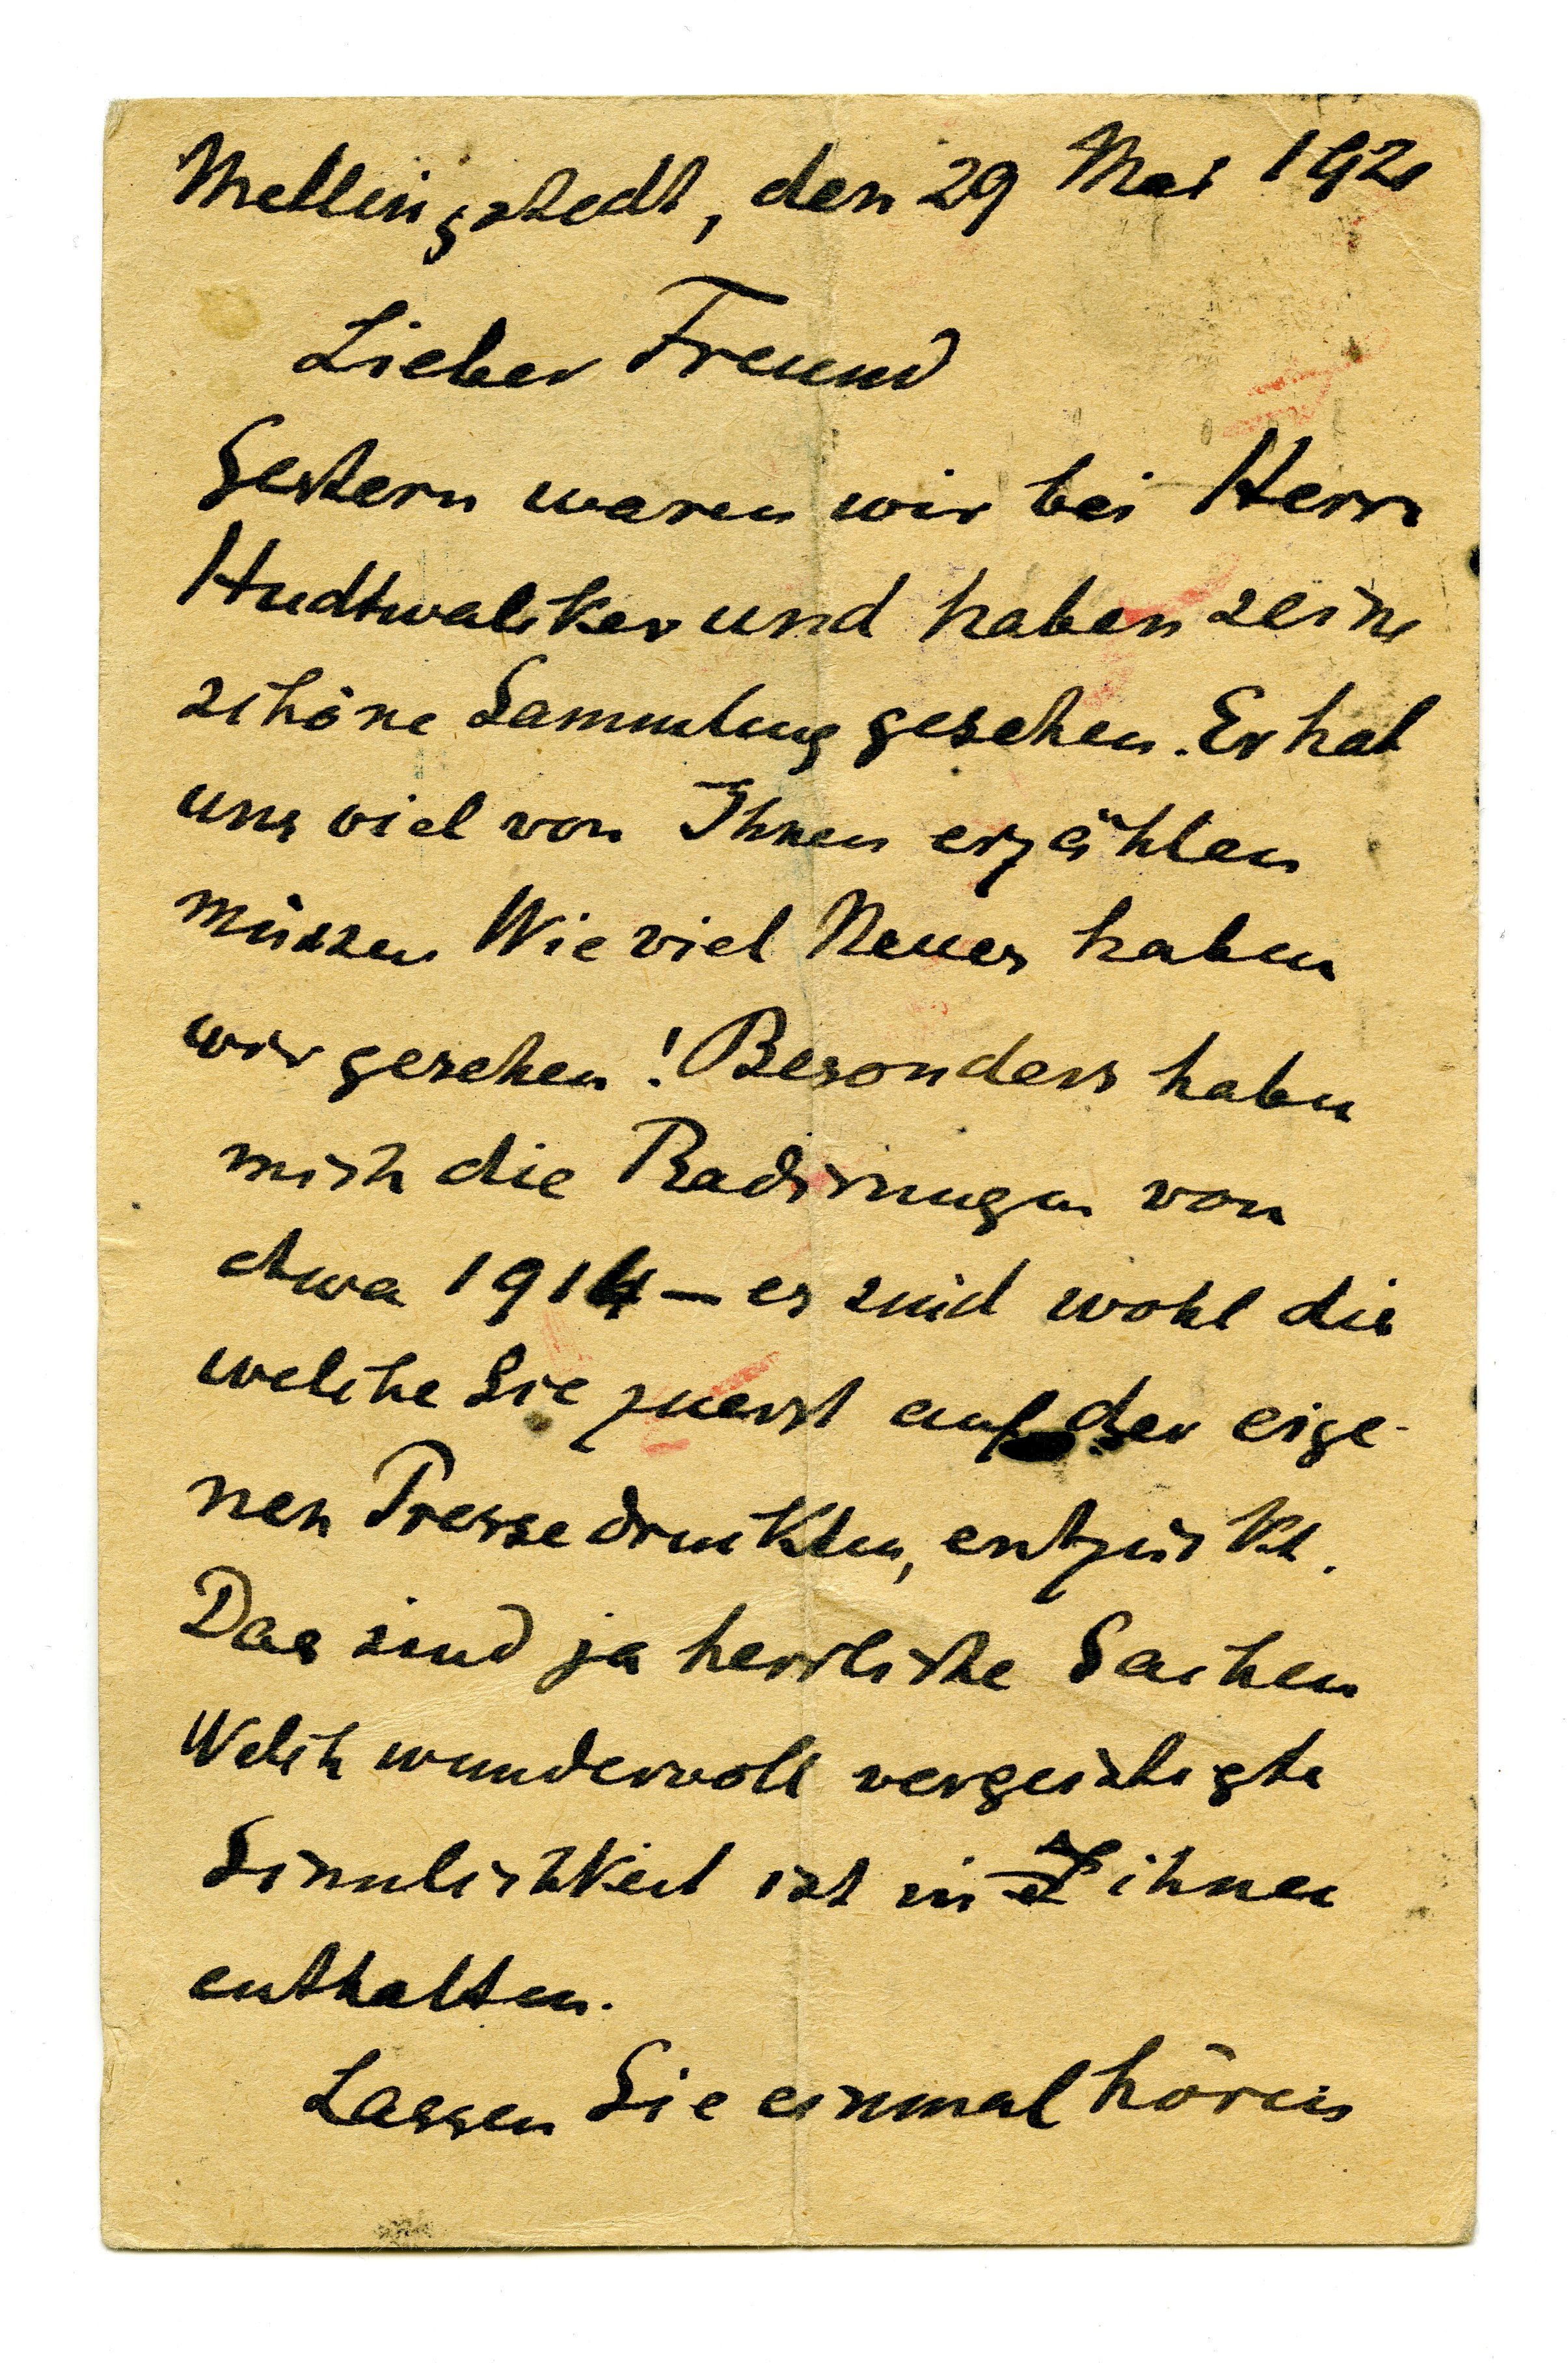 Mellingstedt, den 29 Mai 1921
Lieber Freund
Gestern waren wir bei Herrn
Hudtwalker und haben seine
schöne Sammlung gesehen. Er hat
uns viel von Ihnen erzählen
müssen Wie viel Neues haben
wir gesehen! Besonders haben
mich die Radirungen von
etwa 1914 – es sind wohl die
welche Sie zuerst auf der eige-
nen Presse druckten, entzückt.
Das sind ja herrliche Sachen
Welch wundervoll vergeistigte
Sinnlichkeit ist in ihnen
enthalten.
Lassen Sie einmal hören